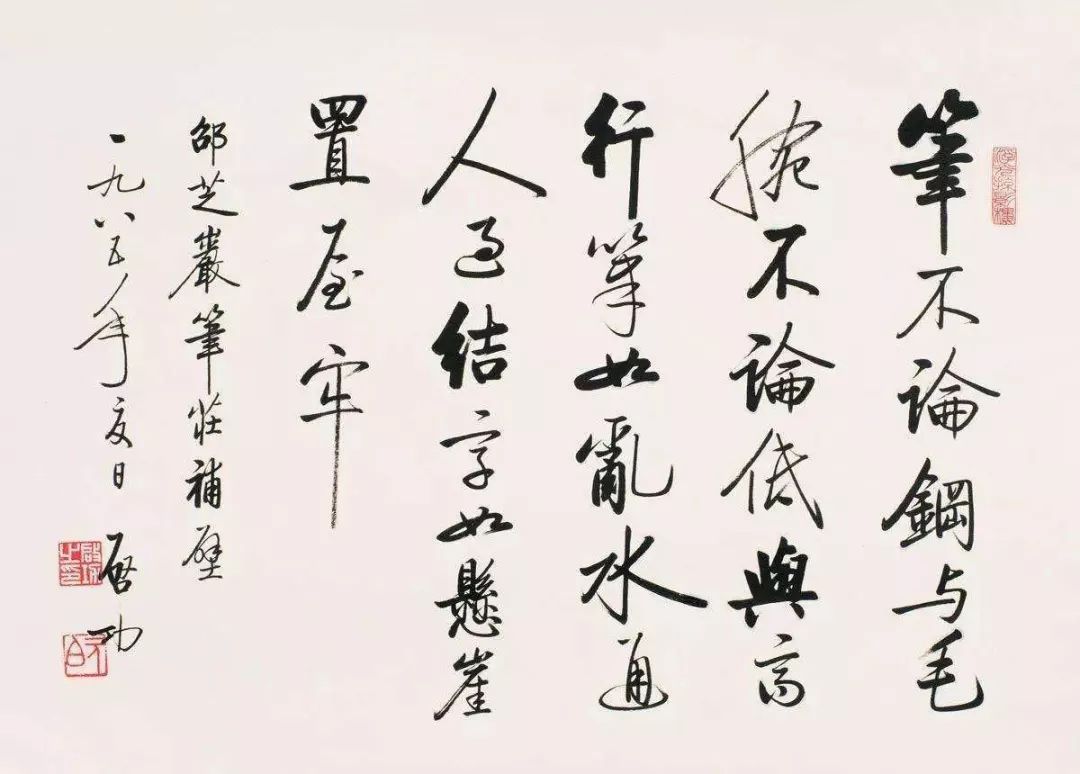 筆不論鋼与毛
腕不論低與高
行筆如亂水通
人過結字如懸崖
置屋牢
邵芝巖筆莊補壁
一九八五年夏日 启功
啟功之印
元白